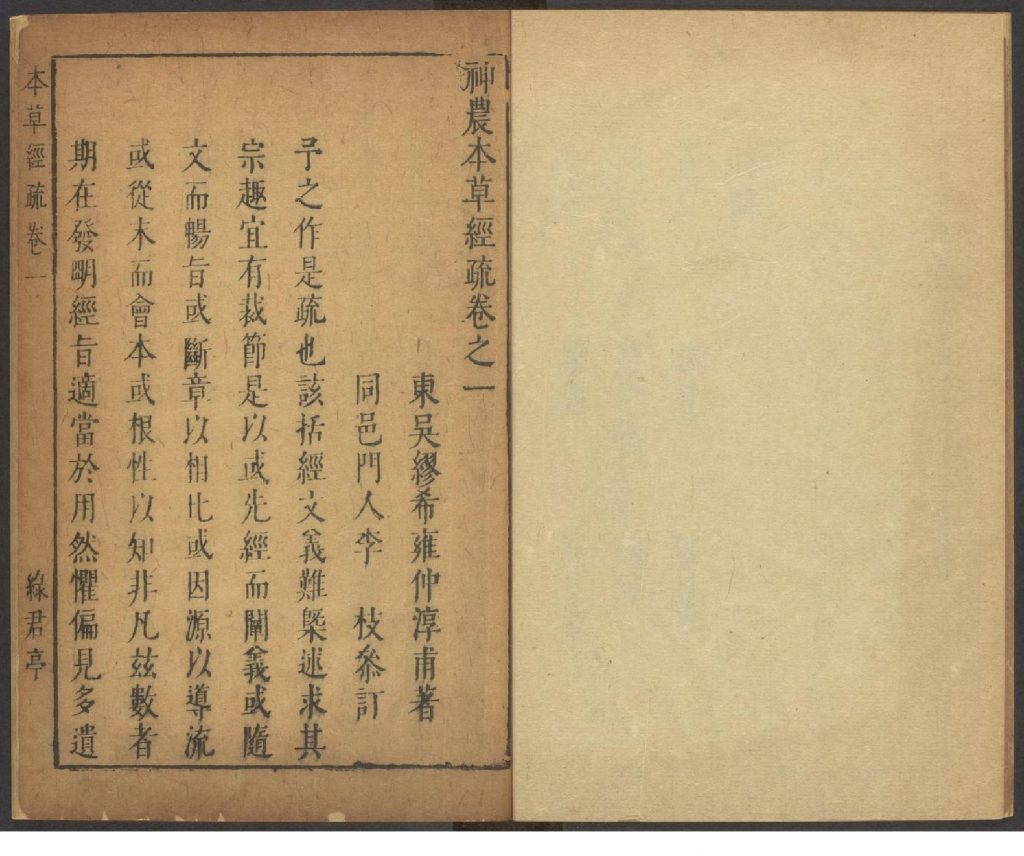 神農本草經疏卷之一
東吳繆希雍仲淳甫著
同邑門人李　枝叅訂
予之作是疏也該括經文義難槩述求其
宗趣宜有裁節是以或先經而闡義或隨
文而暢旨或斷章以相比或因源以導流
或從末而會本或根性以知非凡兹數者
期在發明經旨適當於用然懼偏見多遺
本草經疏　卷一
綠君亭